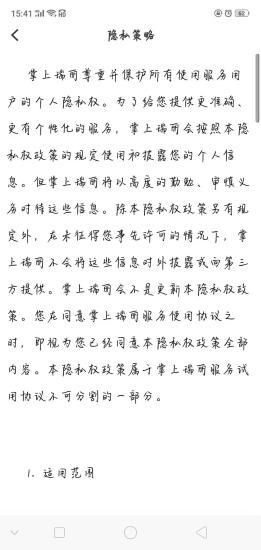 15:41
82
隐私策略
掌上瑞丽尊重并保护所有使用服务用
户的个人隐私权。为了给您提供更准确、
更有个性化的服务，掌上瑞丽会按照本隐
私权政策的规定使用和披露您的个人信
息。但掌上瑞丽将以高度的勤勉、审慎义
务对待这些信息。除本隐私权政策另有规
定外，在未征得您事先许可的情况下，掌
上瑞丽不会将这些信息对外披露或向第三
方提供。掌上瑞丽会不是更新本隐私权政
策。您在同意掌上瑞丽服务使用协议之
时，即视为您已经同意本隐私权政策全部
内容。本隐私权政策属于掌上瑞丽服务试
用协议不可分割的一部分。
1. 适用范围